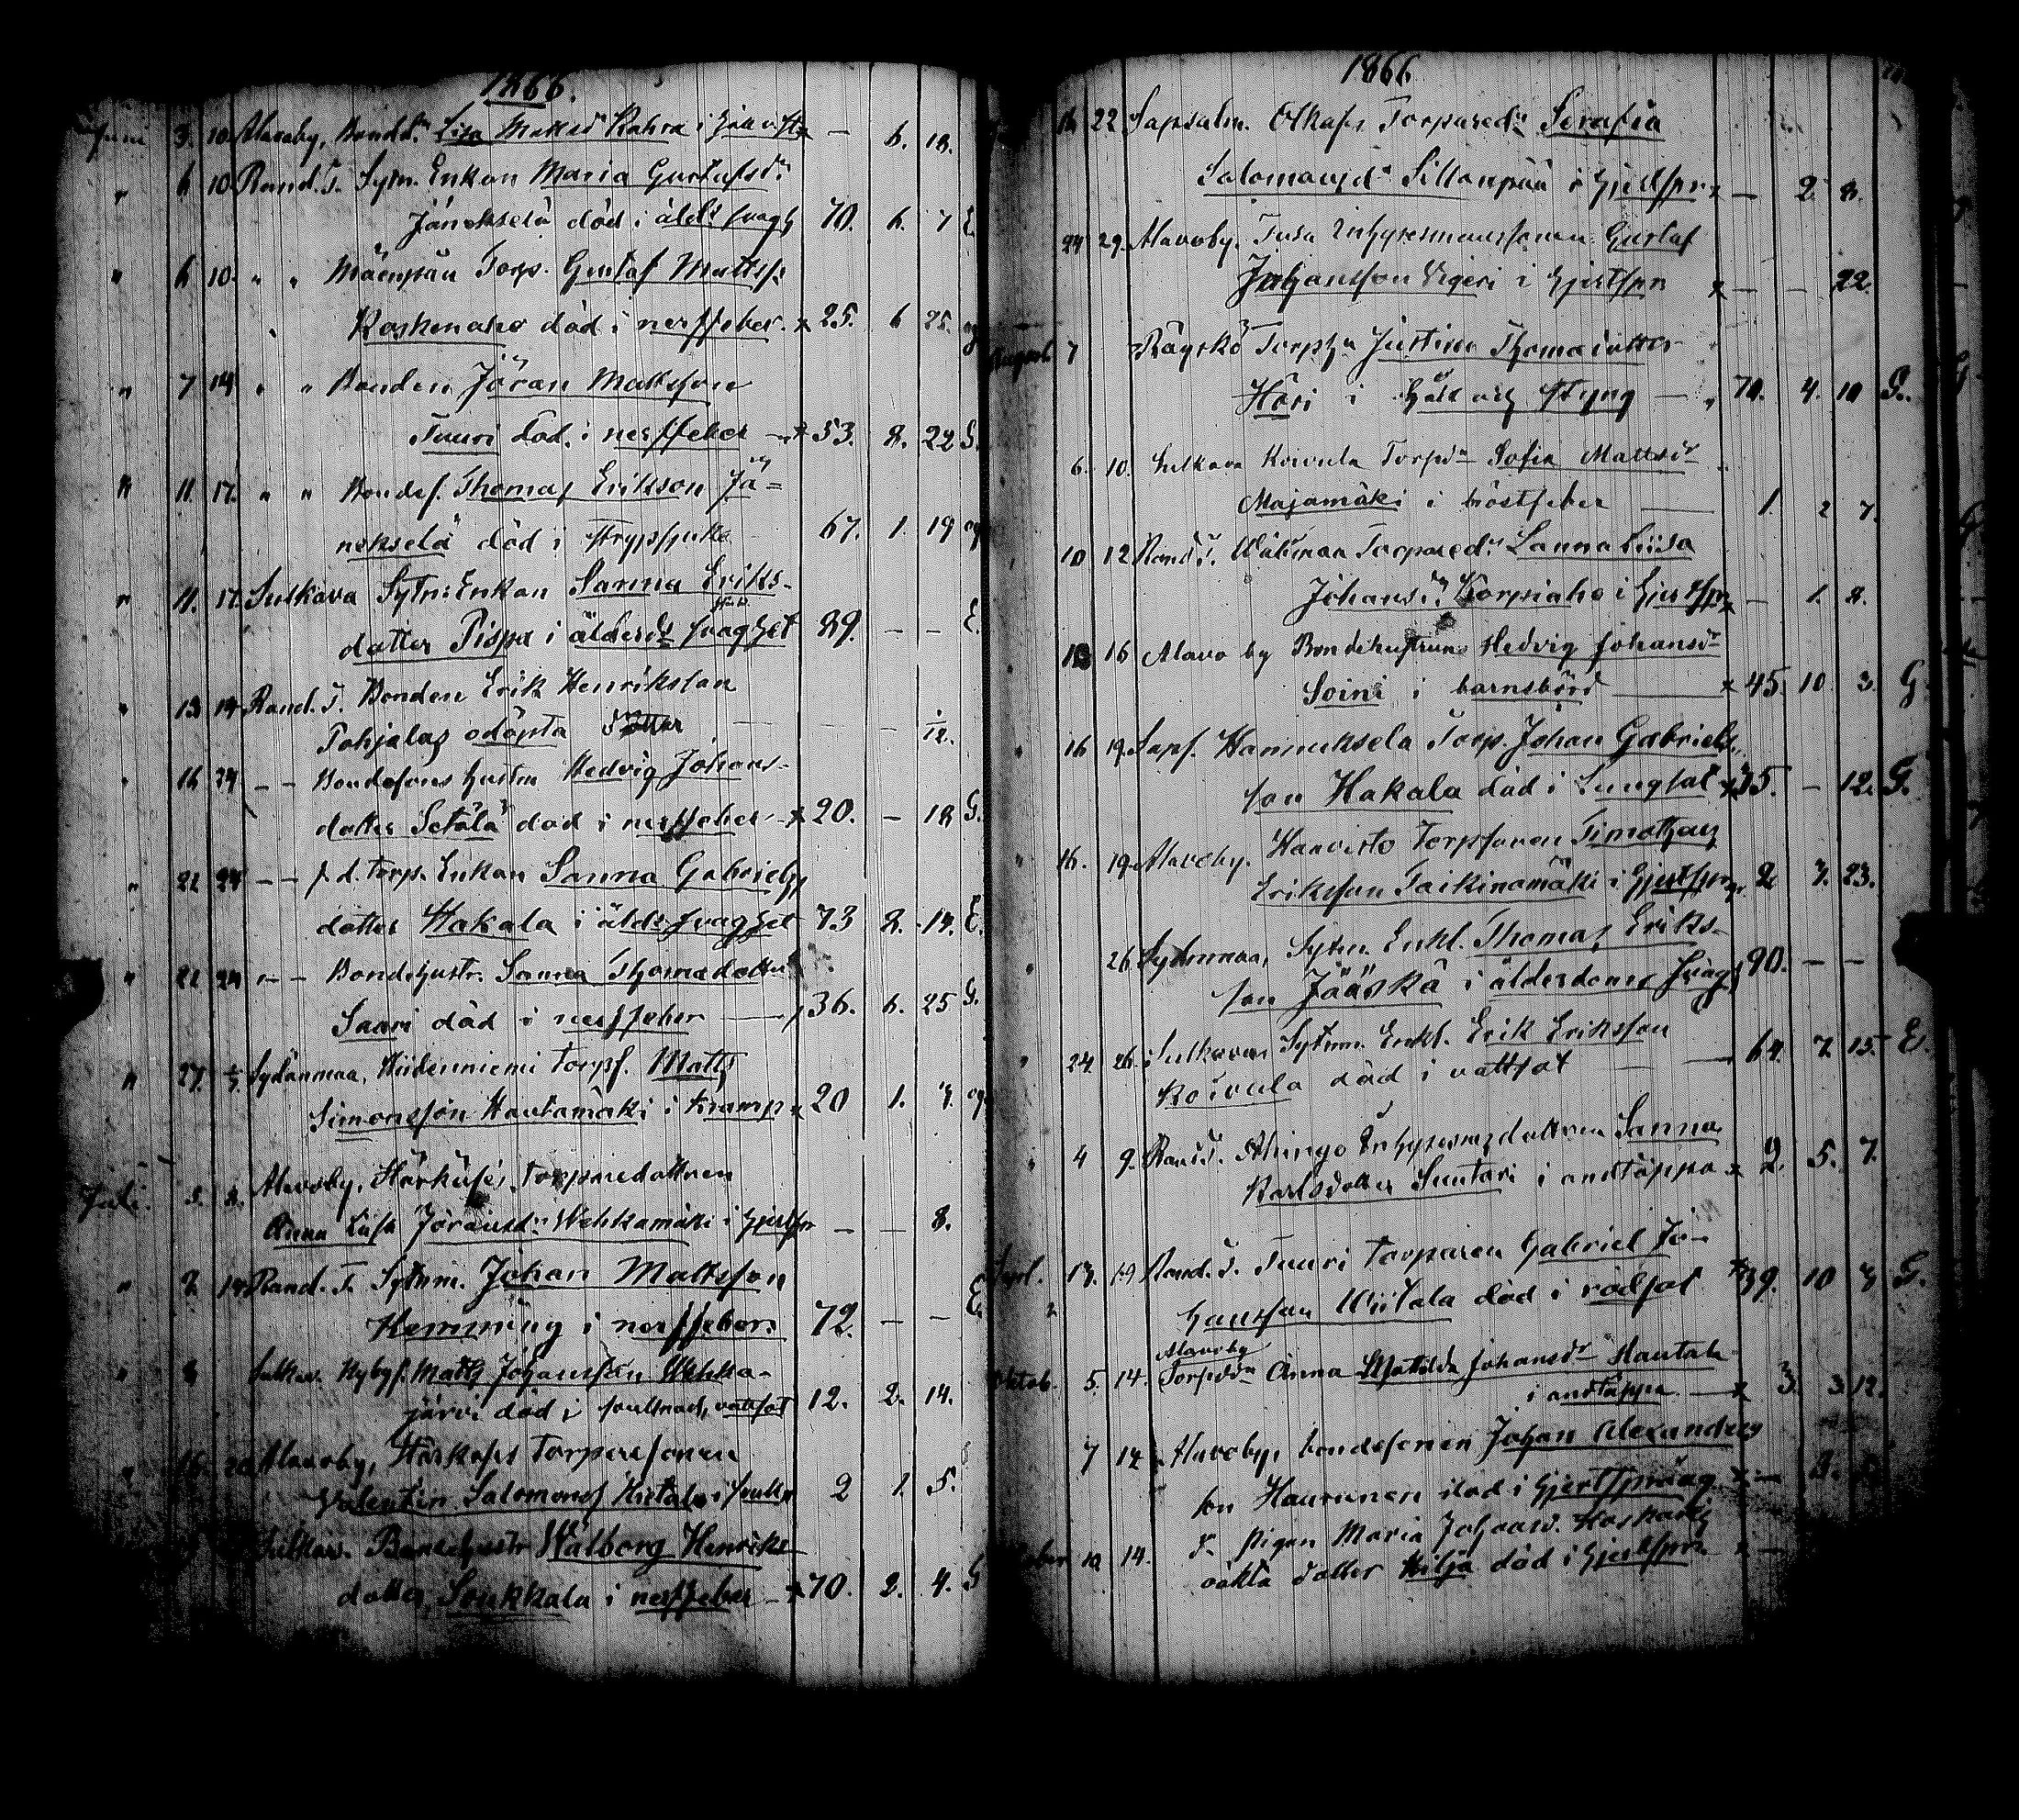 1866.
Juni 3. 10. Alavoby, Bondd:r Lisa Mattsd:r Rahra i — 6. 18.
" 6 10 Rand. T. Sytn. Enkan Maria Gustafsd:r
Jäneksela död i äld:s svagh 70. 6. 7 E.
" 6 10. " " Mäenpää Torp. Gustaf Mattss.
Koskenaho död i nerffeber. x 25. 6 25.
" 7 14 " " Bonden Jöran Mattsson
Tuuri död. i nerffeber — x 53. 8. 22 G.
" 11. 17. " " Bondes. Thomas Erikson Jä=
nekselä död i Strypsjuka 67. 1. 19
" 11. 17. Sulkava Sytn: Enkan Sanna Eriks-
dotter Pispa i ålderds svaghet 89. — — E.
" 13 14 Rand. T. Bonden Erik Henriksson
Pohjalas odöpta dotter — — — 1/12.
" 16 24 — — Bondesons hustru Hedvig Johans-
dotter Setälä död i nerffeber — x 20. — 18 G.
" 21 24 — — f. d. torp. Enkan Sanna Gabriels
dotter Hakala i ålds svaghet 73 8. 14. E.
" 21 24 " — Bondehustr. Sanna Thomasdotter
Saari död i nerffeber — 36. 6. 25 G.
" 27. 1/7. Sydänmaa, Hiidenniemi Torps. Matts
Simonsson Hautamäki i kramp x 20 1. 7.
Juli. 5. 8. Alavoby, Torparedottren
Anna Lisa Jöransd:r Wehkamäki i hjertspr — — 8.
" 2 14 Rand. T. Sytnm. Johan Mattsson
Hemming i nerffeber. 72. — — E.
" 8 Sulkav. Nybygs. Matts Johansson Wehka-
järvi död i vattsot 12. 2. 14.
" 16. 20 Alavoby, Torparesonen
Valentin Salomonss Hietala i 2 1. 5.
Sulkav. Bondehustr Walborg Henriks
dotter, Soukkala i nerffeber — x 70. 2. 4. G
1866.
16 22 Sapsalm. Torpared:r Serafia
Salomonsd:r Sillanpää i hjertspr x — 2. 8.
24 29. Alavoby. Tusa Inhysesmanssonen Gustaf
Johansson i hjertspr x — — 22.
August 7 Torph:u Justina Thomasdotter
Häri i håll och styng — 70. 4. 10 G.
6. 10. Sulkava Koivula Torpd:r Sofia Mattsd:r
Majamäki i bröstfeber — 1. 2 7.
10 12 Rand. T. Torpared:r Sanna Liisa
Johansd:r Korpiaho i hjertspr x — 1. 8.
13 16 Alavo by Bondehustrun Hedvig Johansd:r
Soini i barnsbörd — x 45. 10 3. G.
" 16 19. Saps. Hannuksela Torp. Johan Gabriels
son Hakala död i Lungsot x 35. — 12. G.
" 16. 19. Alavoby. Haavisto Torpsonen Timotheus
Eriksson Taikinamäki i hjertspr 2 7. 23.
" 26 Sydänmaa, Sytn. Enkl. Thomas Eriks-
son Jääskä i ålderdoms svagh 90. — —
" 24. 26. Sulkava Sytnm. Enkl. Erik Eriksson
Koivula död i vattsot — 64. 7. 15. E.
" 4 9. Rand. T. Inhysesmsdottren Sanna
Karlsdotter Suutari i andtäppa x 2. 5. 7.
Sept. 13. 19 Rand. T. Tuuri Torparen Gabriel Jo-
hansson Wiitala död i rödsot x 39. 10 3 G.
Oktob. 5. 14. Alavoby Torpd:r Anna Matilda Johansd:r Hautala
i andtäppa. — x 3. 3. 12.
7 14. Alavoby, bondesonen Johan Alexanders
son Haurunen död i hjertsprång x — 8.
10 14. d:o Pigan Maria Johansd.
oäkta dotter Hilja död i hjertspr. x —